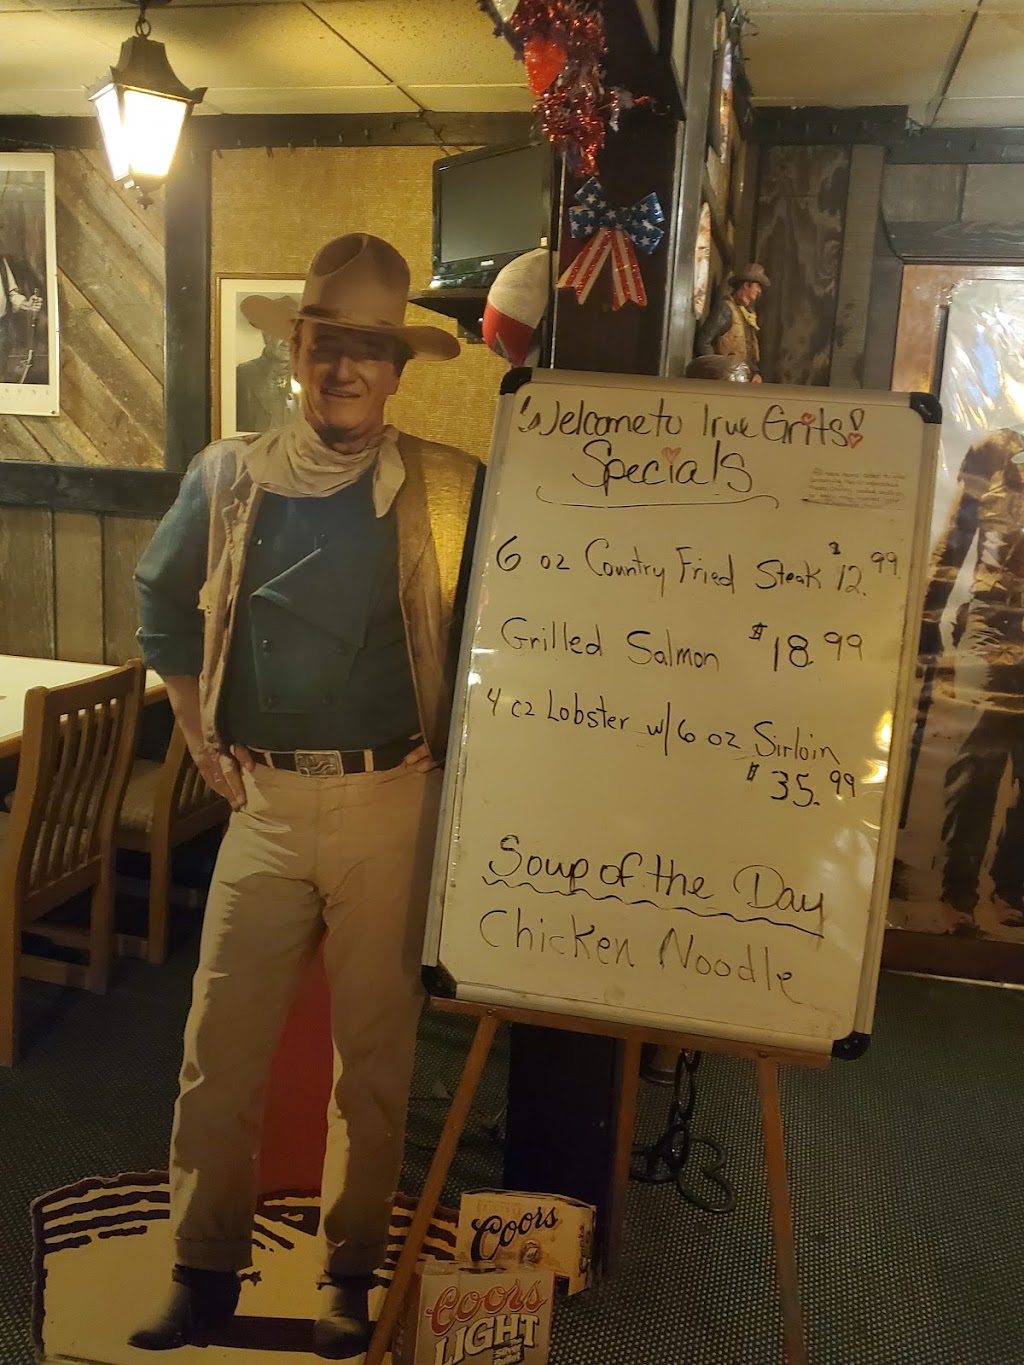 Welcome to True Grits!
Specials
6 oz Country Fried Steak $12.99
Grilled Salmon $18.99
4 oz Lobster w/ 6 oz Sirloin
$35.99
Soup of the Day
Chicken Noodle
Coors
Coors
LIGHT